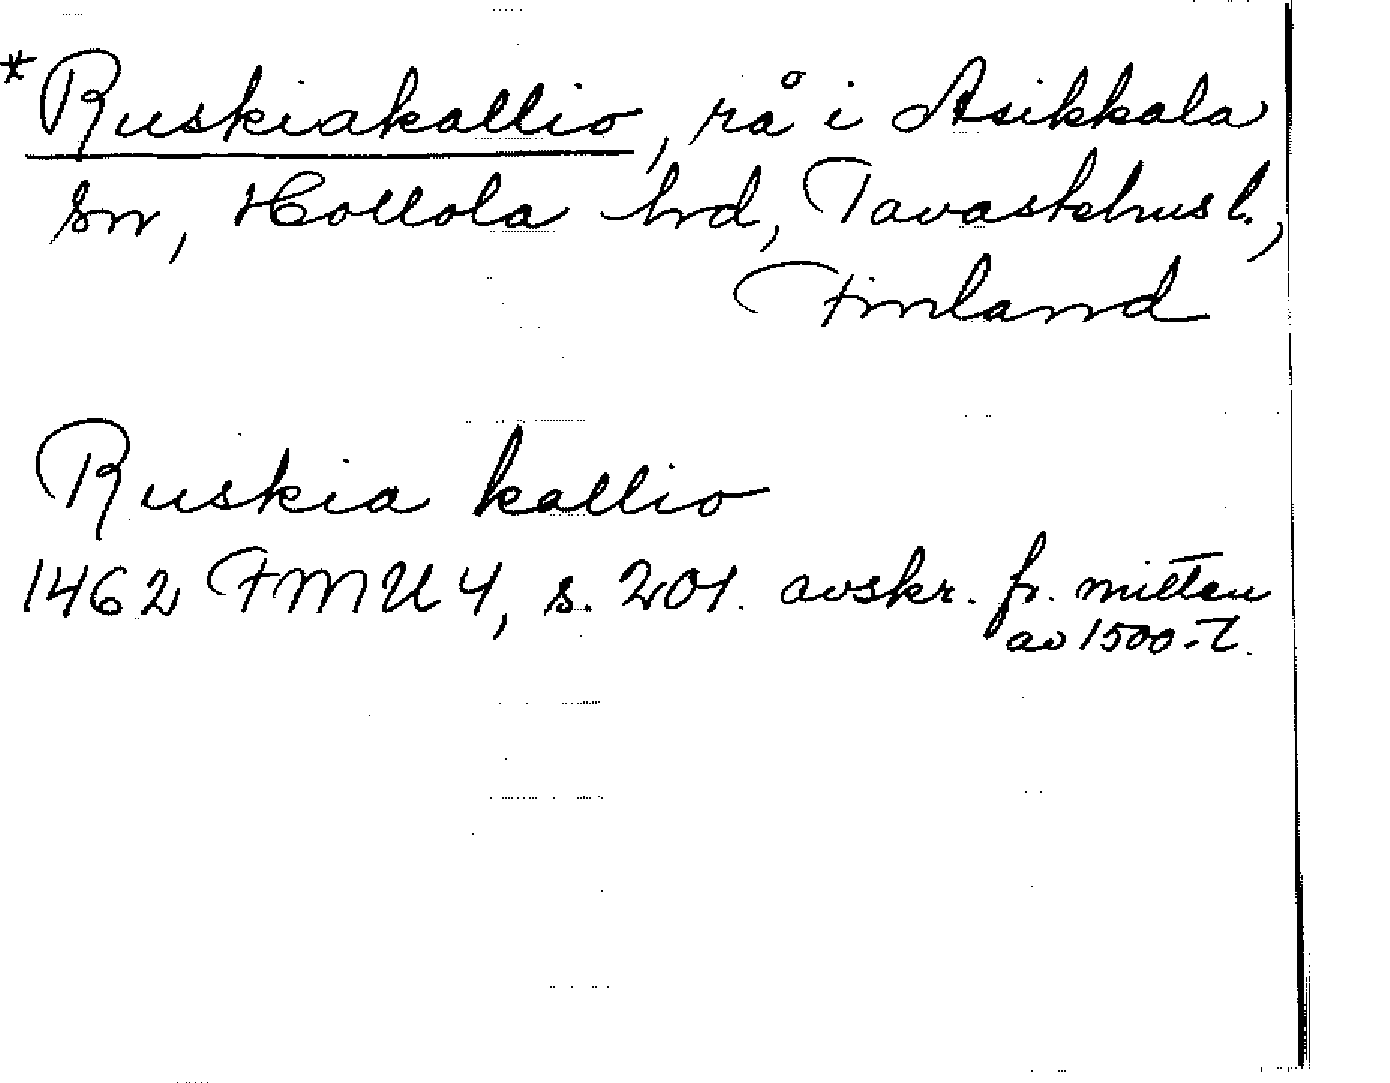 *Ruskiakallio, rå i Asikkala
sn, Hollola hrd, Tavastehus l.,
Finland
Ruskia kallio
1462 FMU 4, s. 201. avskr. fr. mitten
av 1500-t.